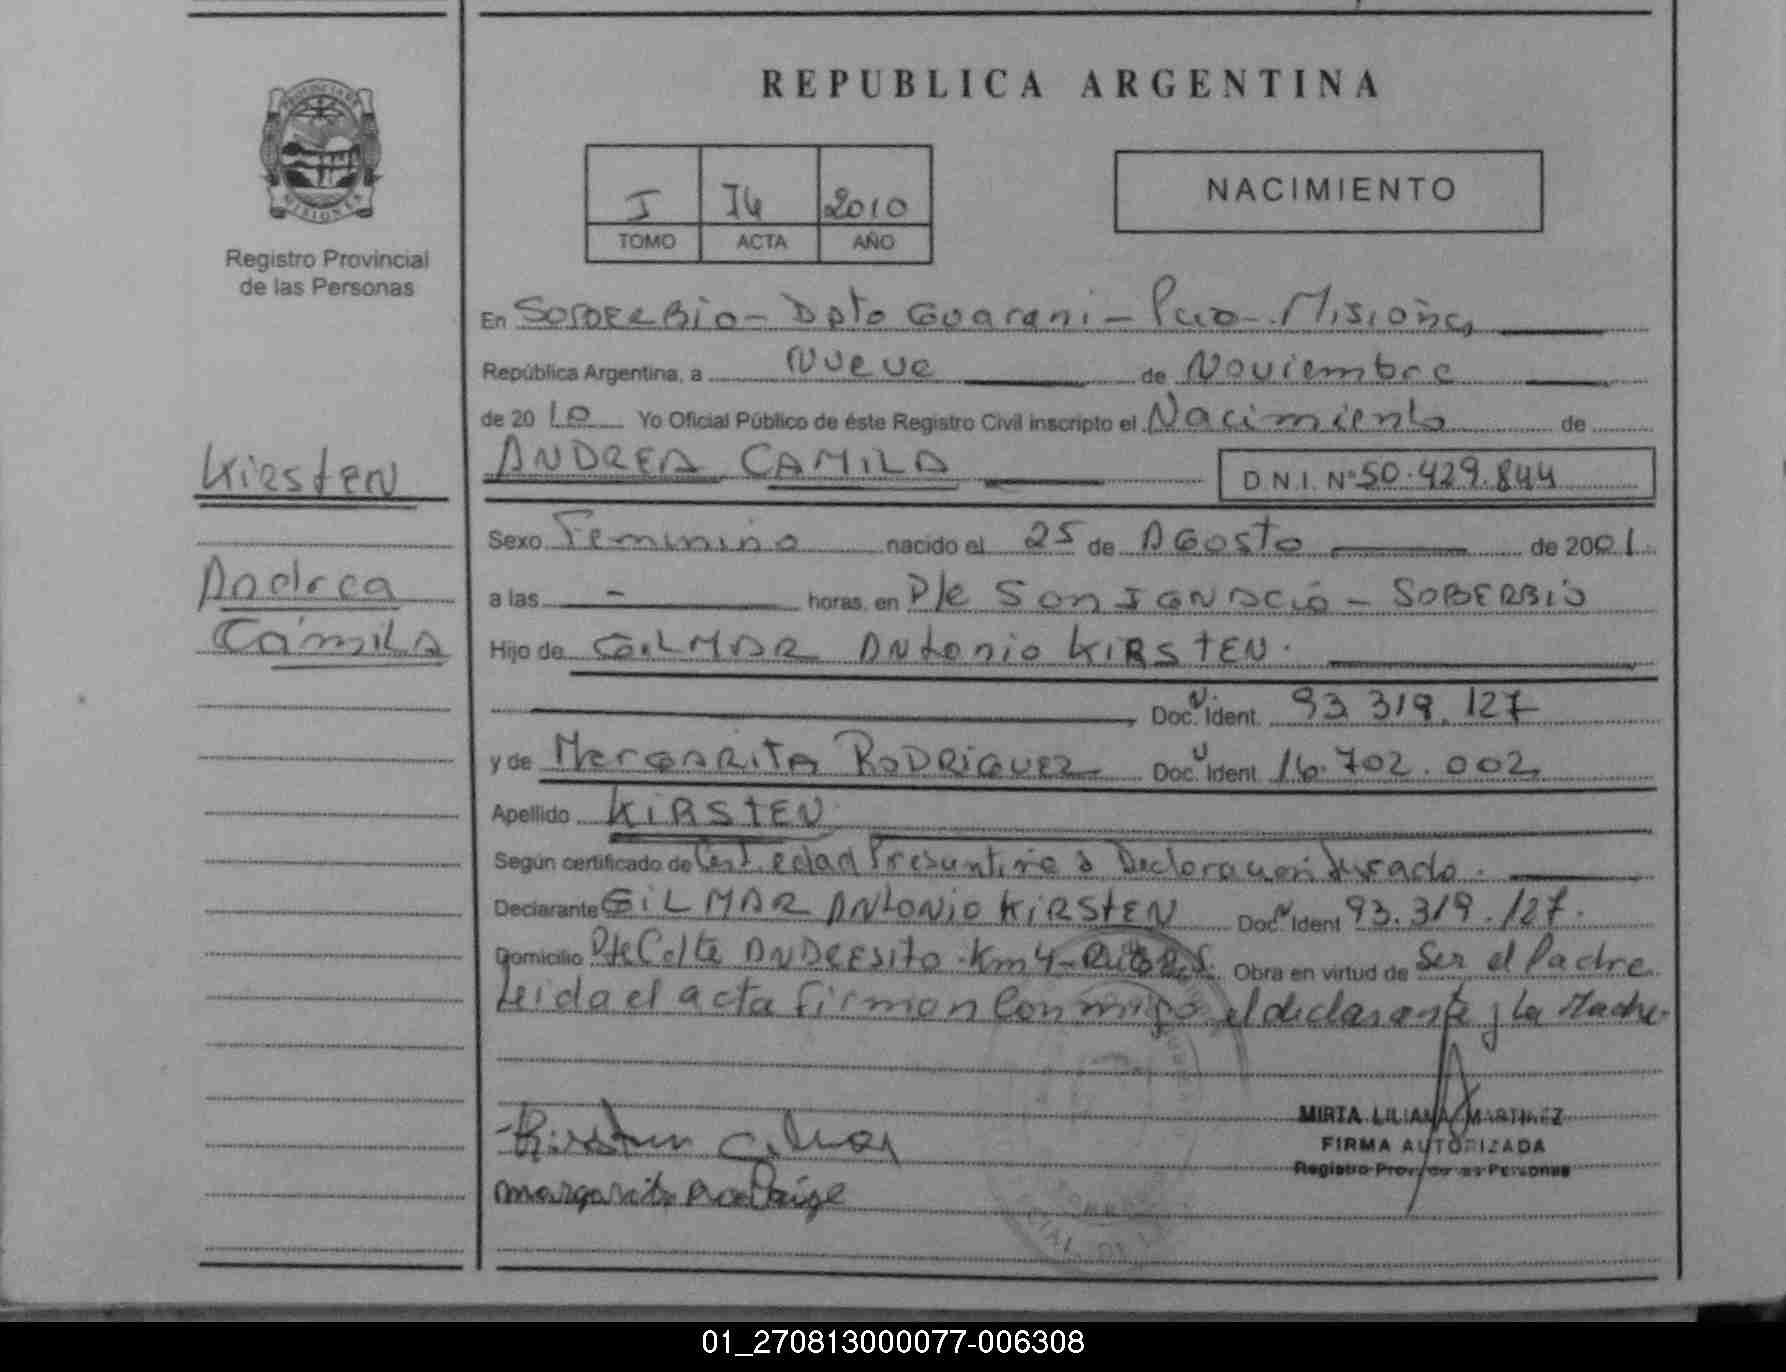 REPUBLICA ARGENTINA
PROVINCIA DE
MISIONES
Registro Provincial
de las Personas
I 74 2010
TOMO ACTA AÑO
NACIMIENTO
En SOBERBIO - Dpto Guarani - Pcia - Misiones
República Argentina, a Nueve de Noviembre
de 2010 Yo Oficial Público de éste Registro Civil inscripto el Nacimiento de
ANDREA CAMILA D.N.I. Nº 50.429.844
KIRSTEN
Andrea
Camila
Sexo Feminino nacido el 25 de AGosto de 2001
a las - horas, en P/e San IGNACiO - SOBERBiO
Hijo de GiLMAR ANtonio KIRSTEN.
Doc. Ident. 93.319.127
y de MARGARITA RODRIGUEZ Doc. Ident 16.702.002
Apellido KIRSTEN
Según certificado de Cert. edad Presuntiva Declaracion Jurada.
Declarante GiLMAR ANtONiO KiRStEN Doc. Ident 93.319.127.
Domicilio ANDRESito - Km 4 - Obra en virtud de Ser el Padre
Leida el acta firman Conmigo el declarante y La Madre.
Kirsten
MIRTA LILIANA MARTINEZ
FIRMA AUTORIZADA
Registro Prov. de las Personas
margarita
01_270813000077-006308